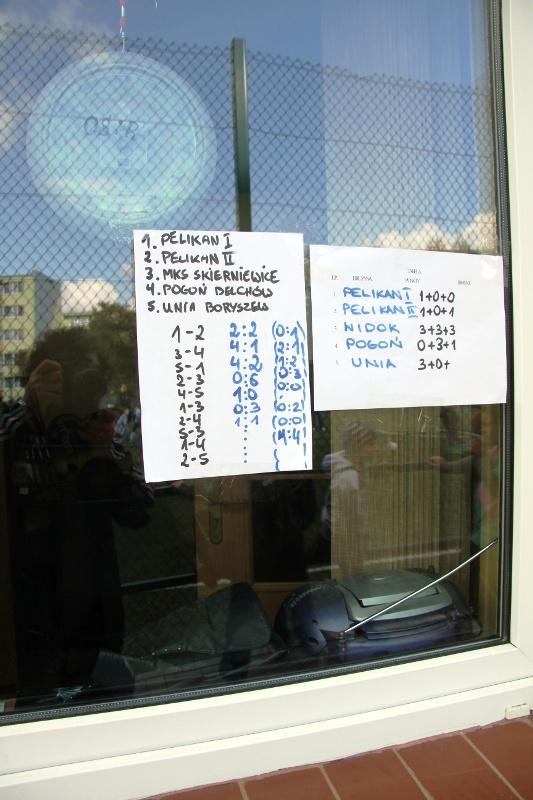 1. PELIKAN I
2. PELIKAN II
3. MKS SKIERNIEWICE
4. POGOŃ BEŁCHÓW
5. UNIA BORYSZEW
1-2 2:2 (0:1)
3-4 4:1
5-1 4:2
2-3 0:6
4-5 1:0
1-3 0:3 (0:2)
2-4 1:1 (0:0)
5-3 : (1:4)
1-4 :
2-5 :
TABELA
L.P. DRUŻYNA PUNKTY BRAMKI
1 PELIKAN I 1+0+0
2 PELIKAN II 1+0+1
3 NIDOK 3+3+3
4 POGOŃ 0+3+1
5 UNIA 3+0+